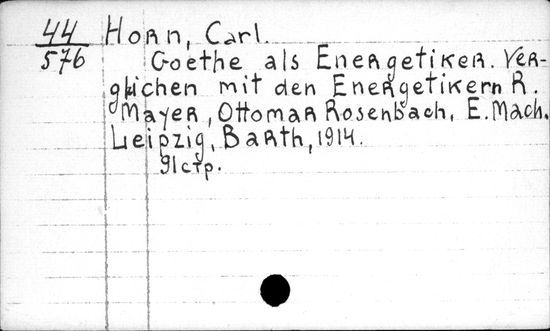 44
576
Horn, Carl.
Goethe als Energetiker. Ver-
glichen mit den Energetikern R.
Mayer, Ottomar Rosenbach, E. Mach.
Leipzig, Barth, 1914.
91 стр.